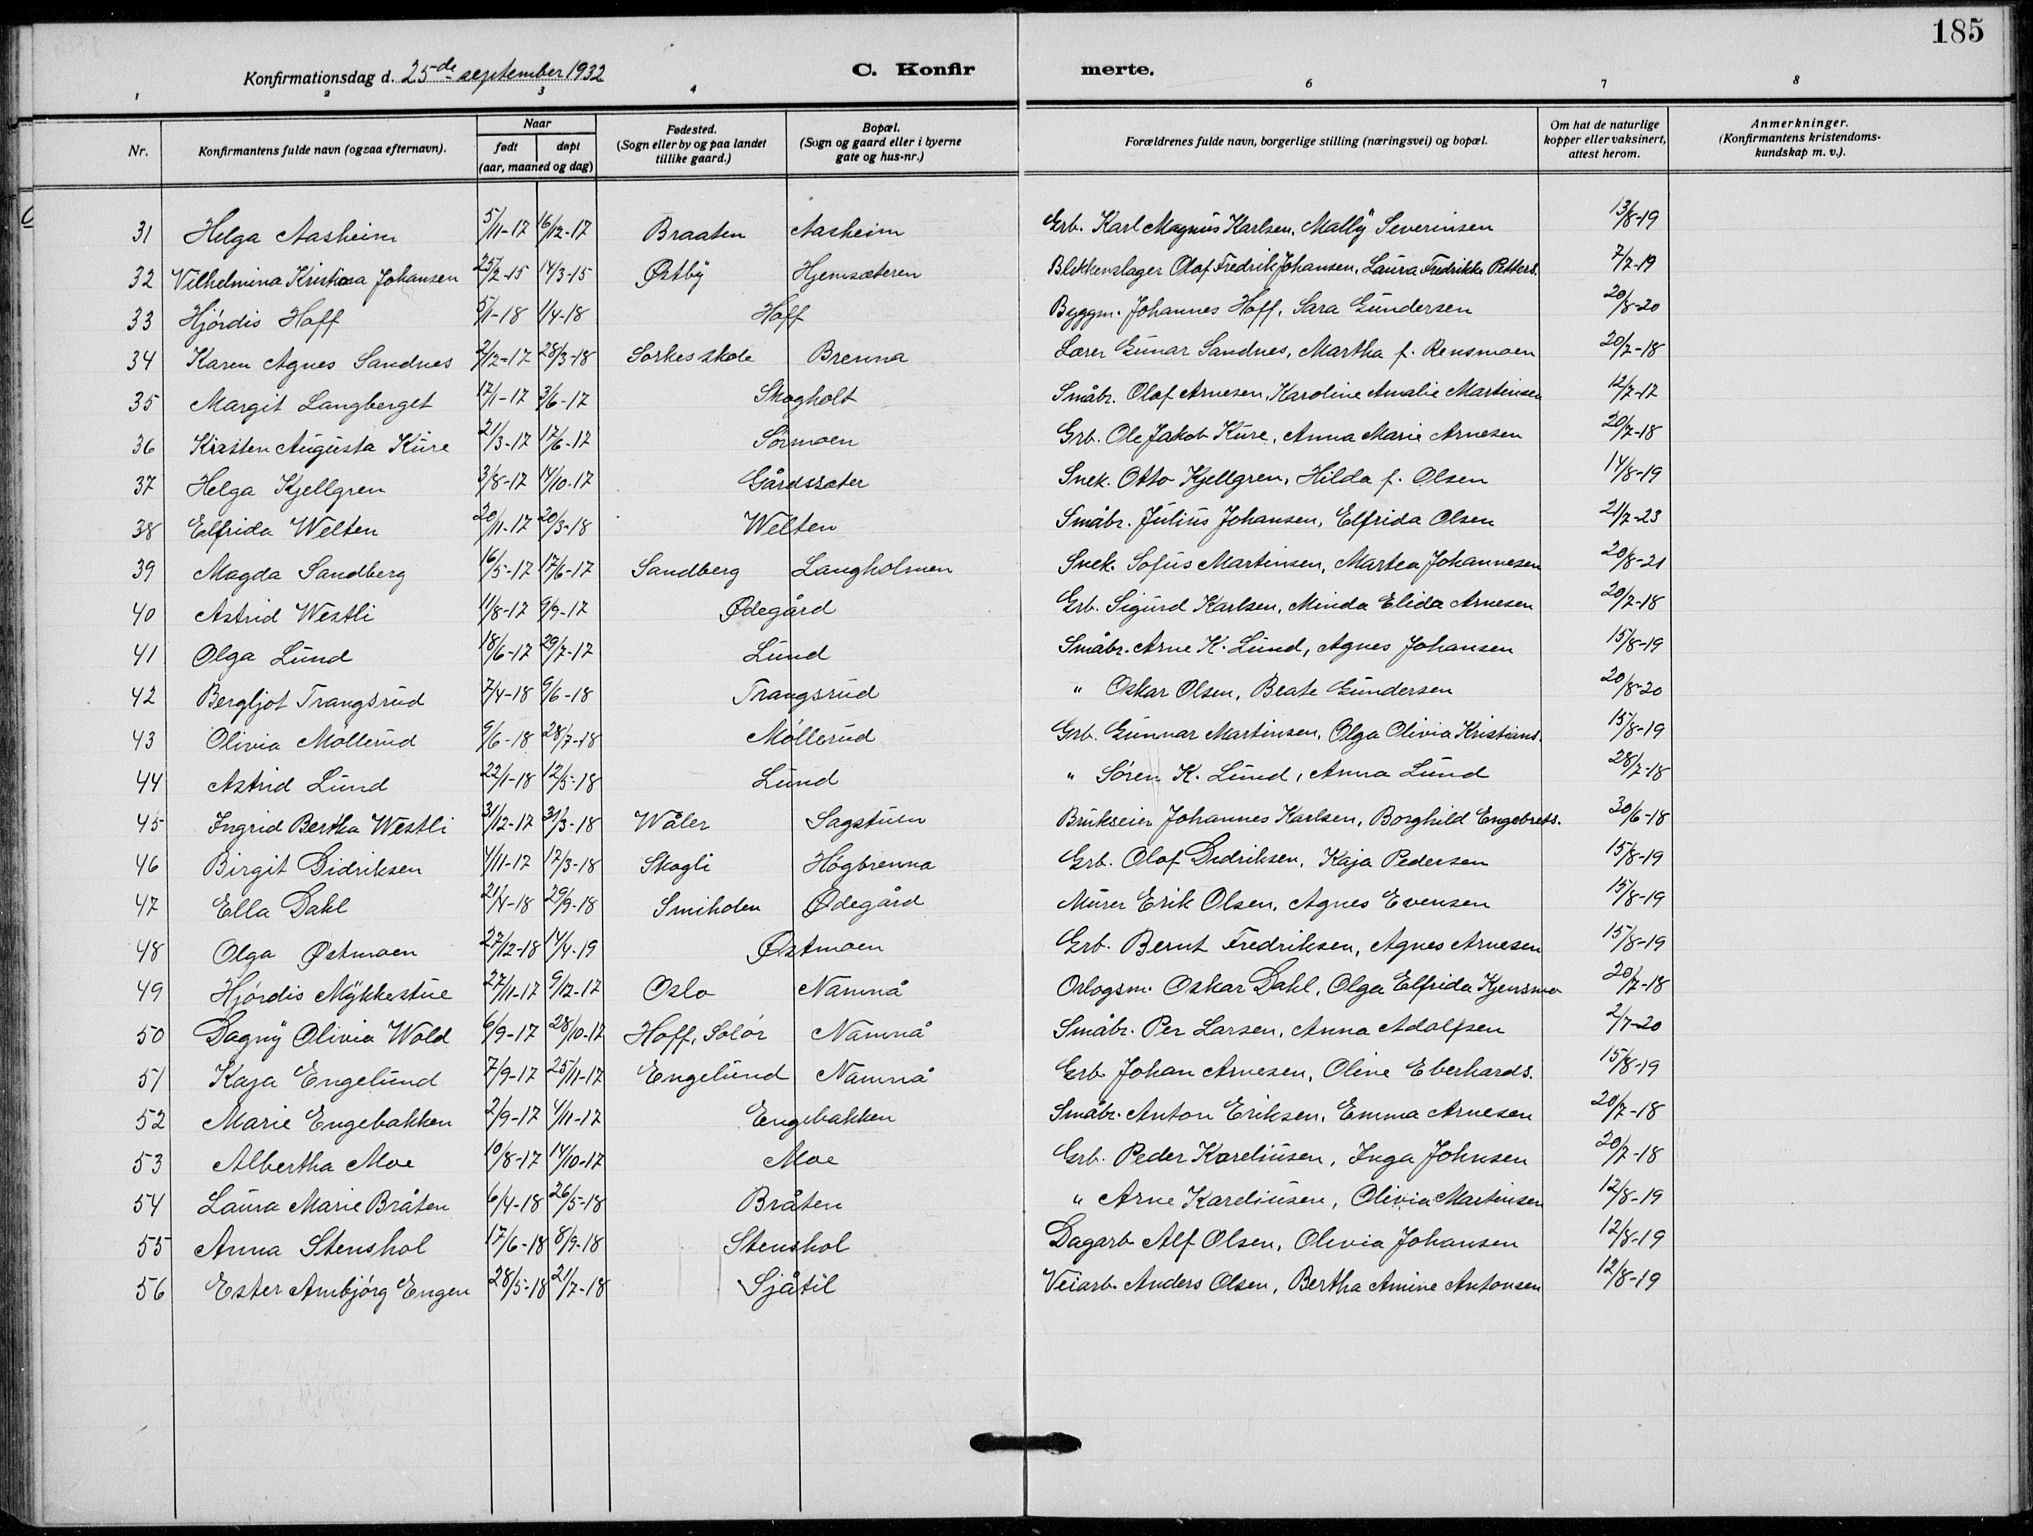 185
Konfirmationsdag d. 25de september 1932 C. Konfir merte.
1 2 3 4 6 7 8
Nr. Konfirmantens fulde navn (ogsaa efternavn). Naar født døpt (aar, maaned og dag) Fødested. (Sogn eller by og paa landet tillike gaard.) Bopæl. (Sogn og gaard eller i byerne gate og hus-nr.) Forældrenes fulde navn, borgerlige stilling (næringsvei) og bopæl. Om hat de naturlige kopper eller vaksinert, attest herom. Anmerkninger. (Konfirmantens kristendoms-kundskap m. v.).
31 Helga Aasheim 5/11-17 16/12-17 Braaten Aasheim Grb. Karl Magnus Karlsen, Mally Severinsen 13/8-19
32 Vilhelmina Kristiana Johansen 25/2-15 14/3-15 Østby Hjemsæteren Blikkenslager Olaf Fredrik Johansen, Laura Fredrikke Petters. 7/7-19
33 Hjørdis Hoff 5/1-18 1/4-18 Hoff Byggm. Johannes Hoff, Sara Gundersen 20/8-20
34 Karen Agnes Sandnes 2/12-17 28/3-18 Sorkesskole Brenna Lærer Gunar Sandnes, Martha f. Rensmoen 20/7-18
35 Margit Langberget 17/1-17 3/6-17 Skogholt Småbr. Olaf Arnesen, Karoline Amalie Martinsen 12/7-17
36 Kirsten Augusta Kure 21/3-17 17/6-17 Sørmoen Grb. Ole Jakob Kure, Anna Marie Arnesen 20/7-18
37 Helga Kjellgren 3/8-17 14/10-17 Gårdssæter Snek. Otto Kjellgren, Hilda f. Olsen 14/8-19
38 Elfrida Welten 20/11-17 20/3-18 Welten Småbr. Julius Johansen, Elfrida Olsen 21/7-23
39 Magda Sandberg 16/5-17 17/6-17 Sandberg Langholmen Snek. Sofus Martinsen, Martea Johannesen 20/8-21
40 Astrid Westli 11/8-17 9/9-17 Ødegård Grb. Sigurd Karlsen, Minda Elida Arnesen 20/7-18
41 Olga Lund 18/6-17 29/7-17 Lund Småbr. Arne K. Lund, Agnes Johansen 15/8-19
42 Bergljot Trangsrud 7/4-18 9/6-18 Trangsrud " Oskar Olsen, Beate Gundersen 20/8-20
43 Olivia Møllerud 9/6-18 28/7-18 Møllerud Grb. Gunnar Martinsen, Olga Olivia Kristians. 15/8-19
44 Astrid Lund 22/1-18 12/5-18 Lund " Søren K. Lund, Anna Lund 28/7-18
45 Ingrid Bertha Westli 31/12-17 31/3-18 Våler Sagstuen Brukseier Johannes Karlsen, Borghild Engebrets. 30/6-18
46 Birgit Didriksen 4/11-17 17/3-18 Skogli Høgbrenna Grb. Olaf Didriksen, Kaja Pedersen 15/8-19
47 Ella Dahl 21/4-18 29/9-18 Smiholen Ødegård Murer Erik Olsen, Agnes Evensen 15/8-19
48 Olga Østmoen 27/12-18 14/4-19 Østmoen Grb. Bernt Fredriksen, Agnes Arnesen 15/8-19
49 Hjørdis Mykkestue 27/11-17 9/12-17 Oslo Namnå Orlogsm. Oskar Dahl, Olga Elfrida Kjensmo 20/7-18
50 Dagny Olivia Wold 6/9-17 28/10-17 Hoff, Solør Namnå Småbr. Per Larsen, Anna Adolfsen 2/7-20
51 Kaja Engelund 7/9-17 25/11-17 Engelund Namnå Grb. Johan Arnesen, Oline Eberhards. 15/8-19
52 Marie Engebakken 2/9-17 4/11-17 Engebakken Småbr. Anton Eriksen, Emma Arnesen 20/7-18
53 Albertha Moe 10/8-17 14/10-17 Moe Grb. Peder Kareliusen, Inga Johnsen 20/7-18
54 Laura Marie Bråten 6/4-18 26/5-18 Bråten " Arne Kareliusen, Olivia Martinsen 12/8-19
55 Anna Stenshol 17/6-18 8/9-18 Stenshol Dagarb. Alf Olsen, Olivia Johansen 12/8-19
56 Ester Ambjørg Engen 28/5-18 21/7-18 Sjåtil Veiarb. Anders Olsen, Bertha Amine Antonsen 12/8-19